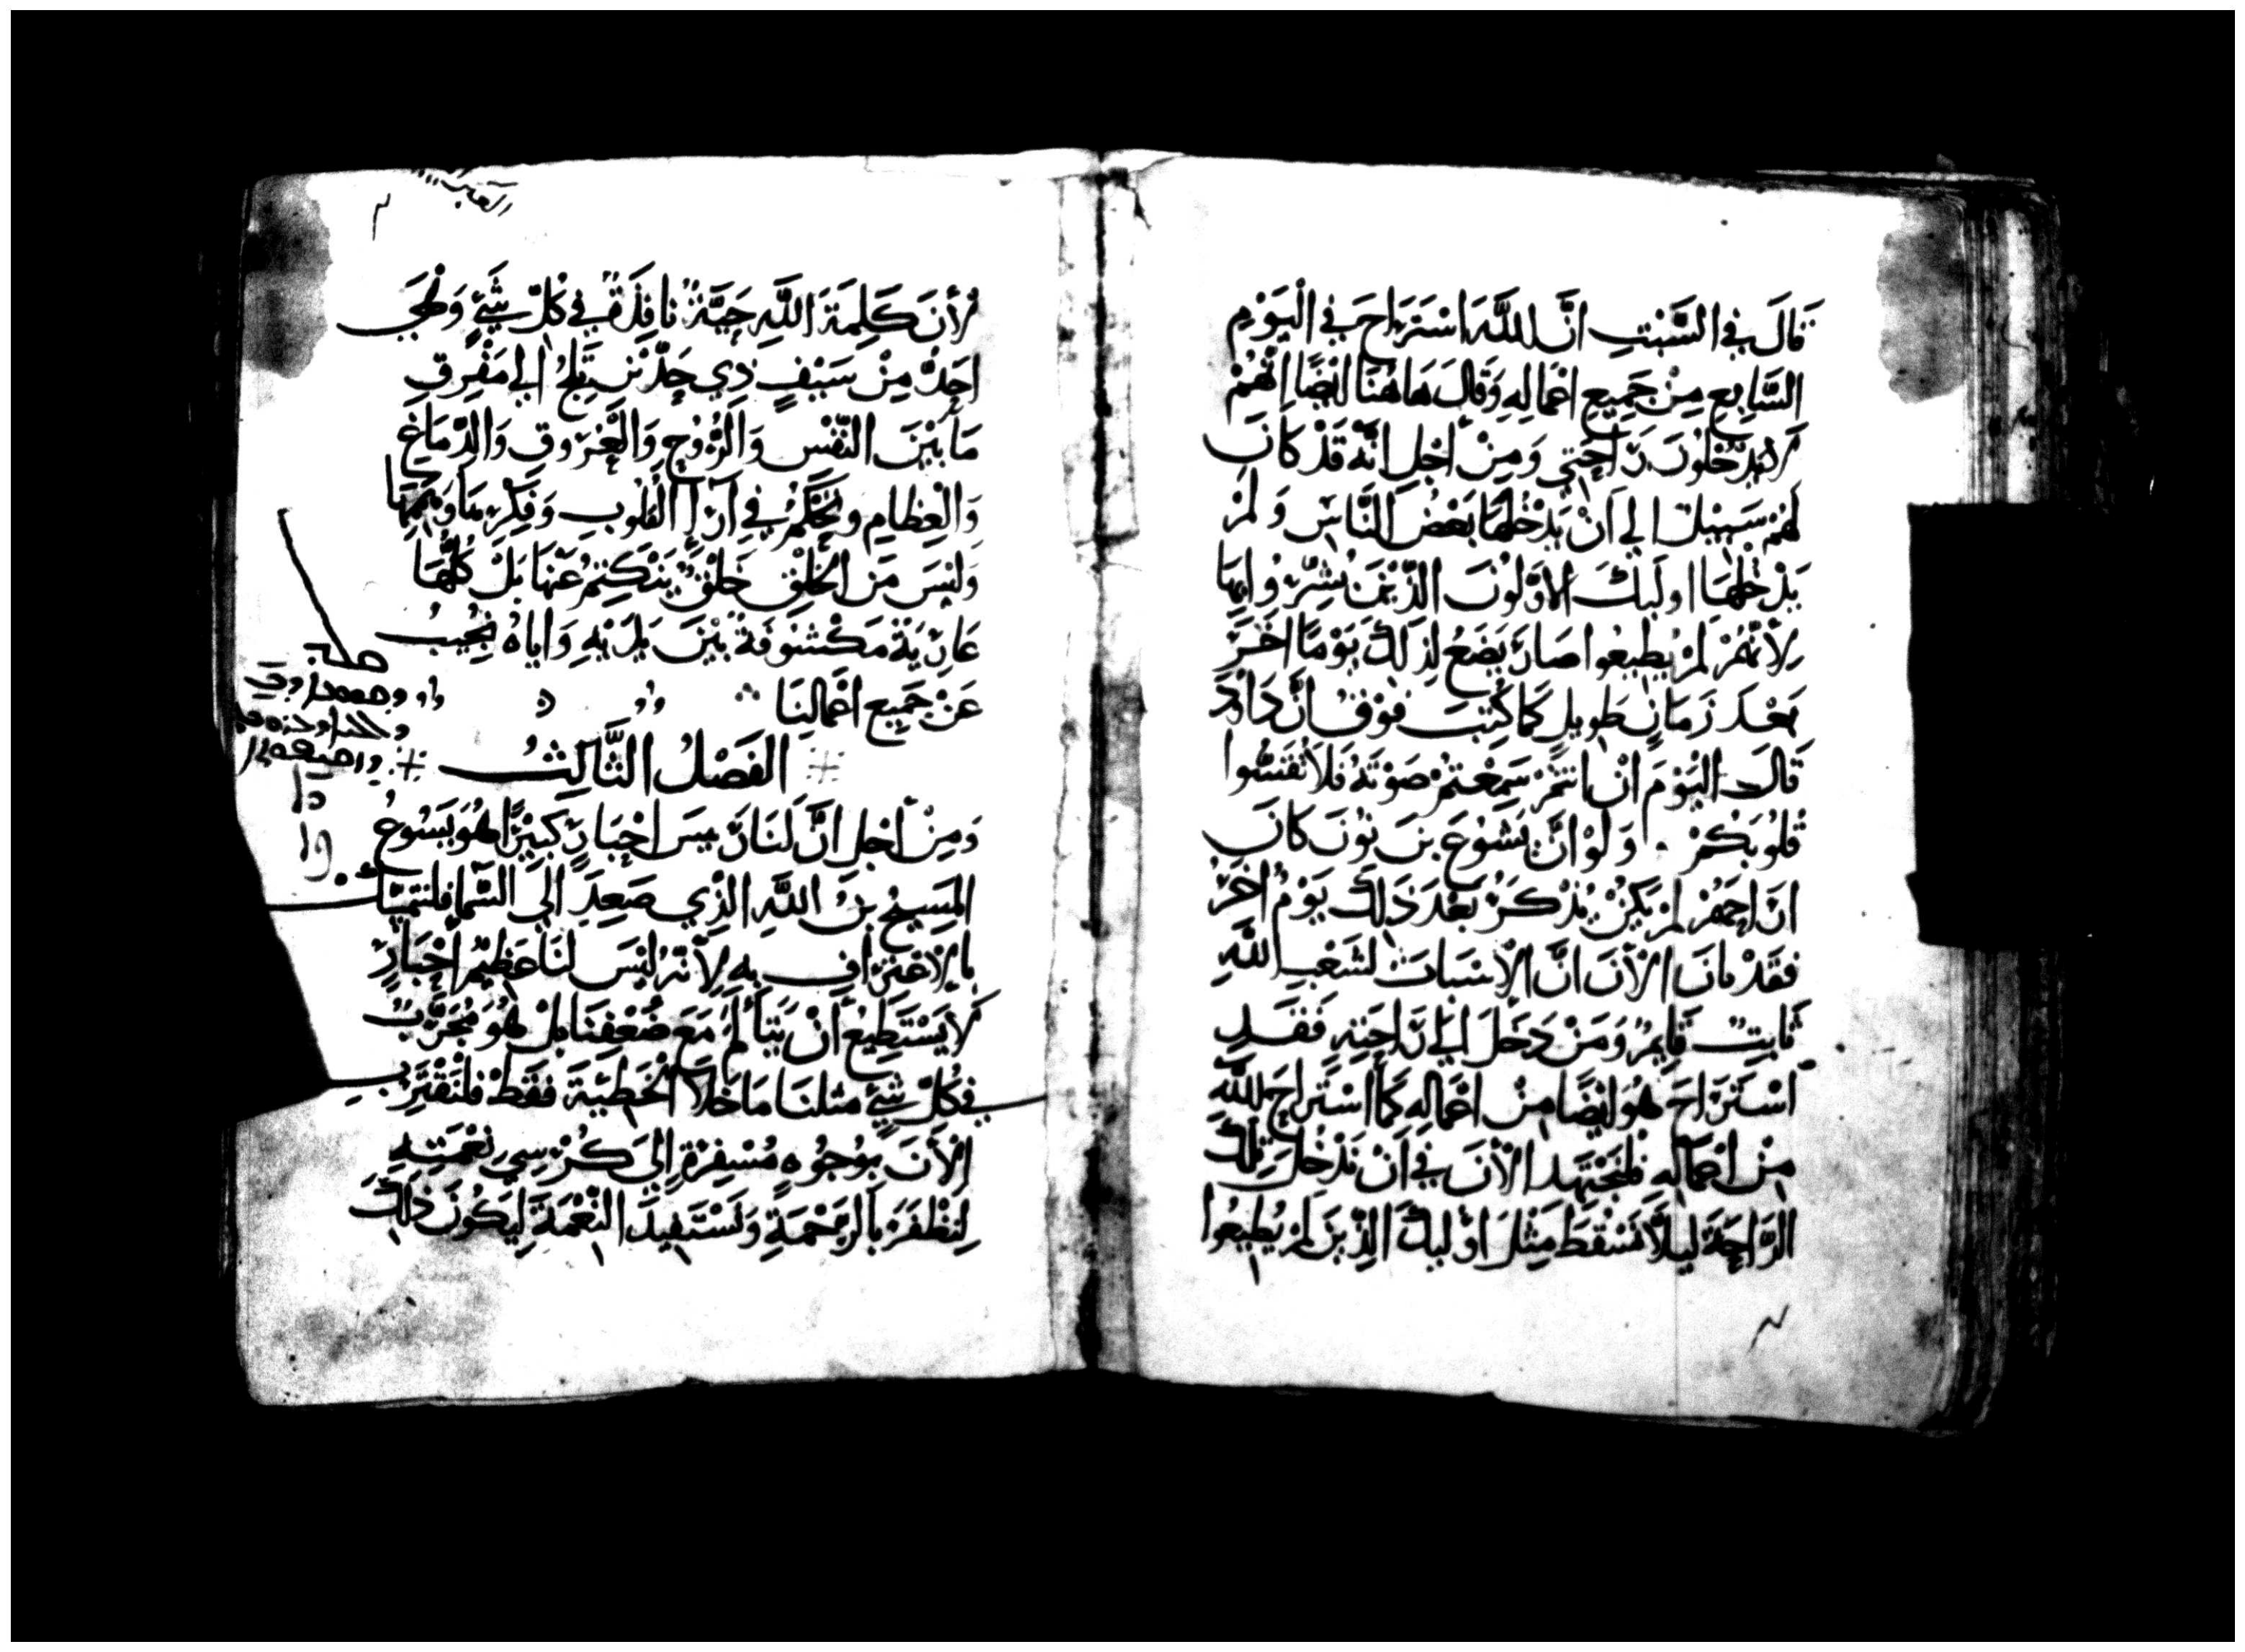 قَالَ في السَّبْتِ انَّ اللهَ اسْتَرَاحَ في الْيَوْمِ
السَّابِعِ مِنْ جَمِيعِ اعْمَالِهِ وَقَالَ هَاهُنَا ايْضًا انَّهُمْ
لَا يَدْخُلُونَ رَاحَتِي وَمِنْ أجْلِ انَّهُ قَدْ كَانَ
لَهُمْ سَبِيْلٌ الي اَنْ يَدْخُلَهَا بَعْضُ النَّاسِ وَلَمْ
يَدْخُلْهَا اولَيكَ الاَوَّلُونَ الذّيْنَ بُشِّرُوا بِهَا
لِأَنَّهُمْ لَمْ يُطِيعُوا صَارَ يَضَعُ لِذَلِكَ يَوْمًا اخَرَ
بَعْدَ زَمَانٍ طَوِيلٍ كَمَا كُتِبَ فَوْقُ انَّ دَاوُدَ
قَالَ الْيَوْمَ انْ انتمْ سَمِعْتُمْ صَوْتَهُ فَلاَ تُقَسُّوا
قُلُوبَكُمْ . وَلَوْ انَّ يَشُوعَ بنَ نُونَ كَانَ
انَاحَهُمْ لَمْ يَكُنْ يُذْكَرُ بَعْدَ ذَلِكَ يَوْمٌ اخَرُ
فَقَدْ بَانَ الْأنَ انَّ الْأسْبَاتَ لشَعْبِ اللهِ
ثَابِتٌ قَايِمٌ وَمَنْ دَخَلَ الَي رَاحَتِهِ فَقَدِ
اسْتَرَاحَ هُو ايْضًا مِنْ اعْمَالِهِ كَمَا اسْتَرَاحَ اللهُ
مِنْ اعْمَالِهِ فلنَجْتَهِد الْأنَ في اَنْ نَدْخُلَ تِلْكَ
الرَّاحَةَ لَيلَّا نَسْقُطَ مِثْلَ اوْلَيكَ الذّيْنَ لَمْ يُطِيعُوا
لأنَ كَلِمَةَ اللَّهِ حَيَّةٌ نَافِذَةٌ في كُلِّ شَيْءٍ وَهْيَ
احَدُّ مِنْ سَيْفٍ ذِي حَدَّيْنِ تَلِجُ الَي مَفْرِقِ
مَا بَيْنَ النَّفْسِ وَالرُّوحِ وَالْعُرُوقِ وَالدِّمَاغِ
وَالْعِظَامِ وتَحْكُمُ في اَرَآ الْقُلُوبِ وَفِكْرِهَا وَهَمِّهَا
وَلَيْسَ مِنَ الْخَلِقِ خَلْقٌ يَنْكَتِمُ عَنْهَا بَلْ كُلُّهَا
عَارِيَةٌ مَكْشُوفَةٌ بَيْنَ يَدَيْهِ وَايَاهُ نُجِيبُ
عَنْ جَمِيعِ اعْمَالِنَا
الفَصْلُ الثَّالِثُ
وَمِنْ أجْلِ انَّ لَنَا رَييسَ احْبَارٍ كَبِيْرًا هُوَ يَسُوعُ
المَسِيحُ بنُ اللَّهِ الذِي صَعِدَ الَي السَّمَا فلنتمسَّك
بالاعْتِرَافِ بِهِ لِأنَّهُ لَيْسَ لنَا عَظِيمُ احْبَارٍ
لاَ يَسْتَطِيعُ أنْ يَتَأَلَّمَ مَعَ ضُعْفِنَا بَلْ هُوَ مُجَرَّبٌ
في كُلِّ شَيْءٍ مثلنَا مَا خَلَا الْخَطِيَّةَ فقَطْ فلنَقْتَرِبِ
الْأنَ بوُجُوهٍ مُسْفِرَةٍ اِلَي كُرْسِي نِعْمَتِهِ
لِنَظْفَرَ بَالرَّحْمَةِ وَنَسْتَفِيدَ النِّعْمَةَ لِيَكُونَ ذَلِكَ